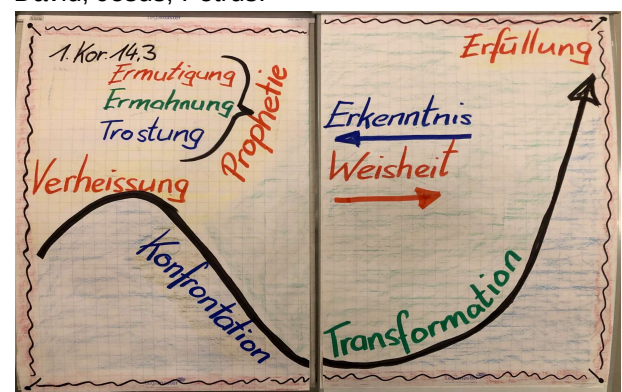 David, Jesus, Petrus.
1. Kor. 14,3
Ermutigung
Ermahnung
Trostung
Prophetie
Verheissung
Konfrontation
Erfüllung
Erkenntnis
Weisheit
Transformation